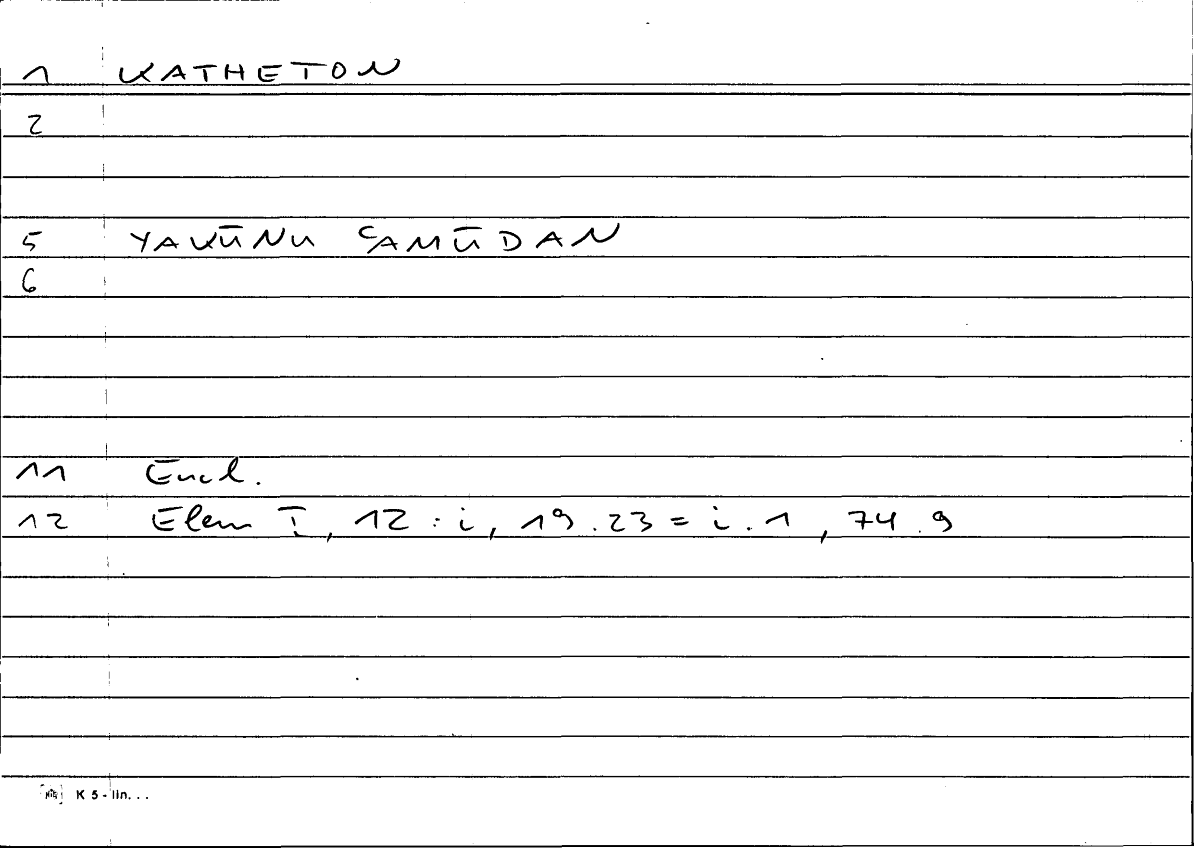 1 KATHETON
2
5 YAKŪNU ʿAMŪDAN
6
11 Eucl.
12 Elem I, 12 : i, 19.23 = i.1, 74.9
K 5 - lin. . .